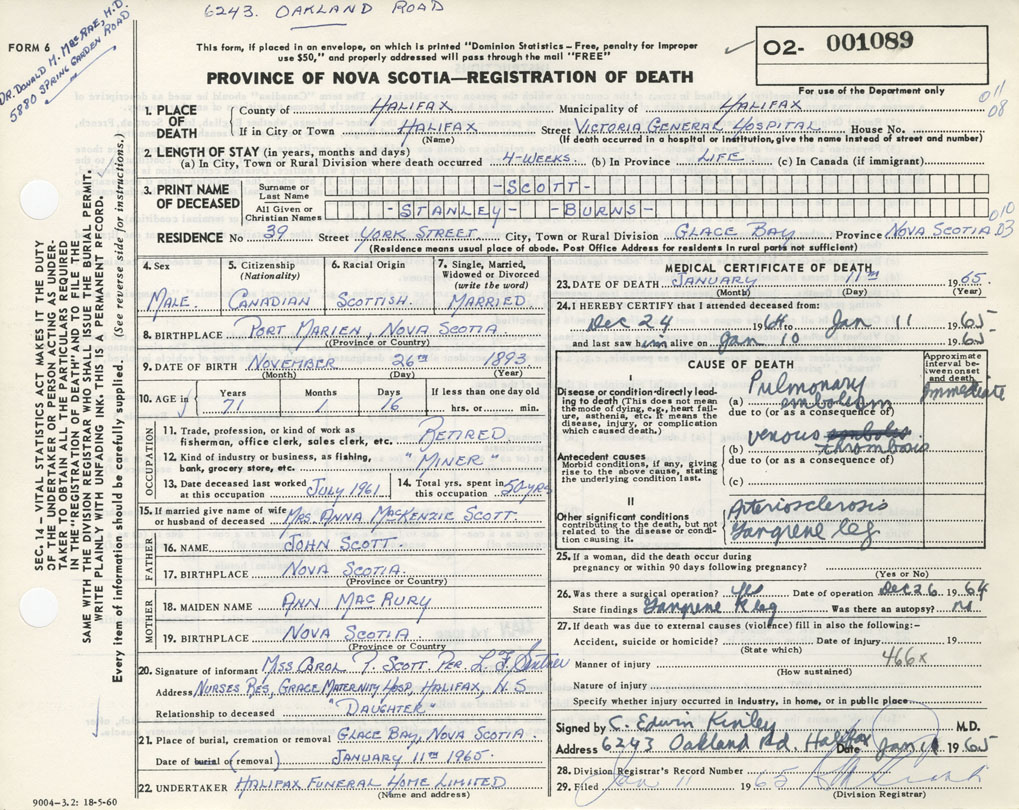 6243. OAKLAND ROAD
DR. DONALD M. MACRAE, M.D.
5880 SPRING GARDEN ROAD
FORM 6
This form, if placed in an envelope, on which is printed "Dominion Statistics – Free, penalty for improper
use $50," and properly addressed will pass through the mail "FREE"
PROVINCE OF NOVA SCOTIA—REGISTRATION OF DEATH
02- 001089
For use of the Department only
011
08
1. PLACE OF DEATH County of HALIFAX Municipality of HALIFAX
If in City or Town HALIFAX Street VICTORIA GENERAL HOSPITAL House No.
(Name) (If death occurred in a hospital or institution, give the name instead of street and number)
2. LENGTH OF STAY (in years, months and days)
(a) In City, Town or Rural Division where death occurred 4-WEEKS. (b) In Province LIFE. (c) In Canada (if immigrant)
3. PRINT NAME OF DECEASED Surname or Last Name -SCOTT-
All Given or Christian Names -STANLEY- -BURNS-
010
D3
RESIDENCE No 39 Street YORK STREET City, Town or Rural Division GLACE BAY Province NOVA SCOTIA
(Residence means usual place of abode. Post Office Address for residents in rural parts not sufficient)
SEC. 14 – VITAL STATISTICS ACT MAKES IT THE DUTY
OF THE UNDERTAKER OR PERSON ACTING AS UNDER-
TAKER TO OBTAIN ALL THE PARTICULARS REQUIRED
IN THE "REGISTRATION OF DEATH" AND TO FILE THE
SAME WITH THE DIVISION REGISTRAR WHO SHALL ISSUE THE BURIAL PERMIT.
WRITE PLAINLY WITH UNFADING INK. THIS IS A PERMANENT RECORD.
Every item of information should be carefully supplied. (See reverse side for instructions.)
4. Sex 5. Citizenship (Nationality) 6. Racial Origin 7. Single, Married, Widowed or Divorced (write the word)
MALE. CANADIAN SCOTTISH. MARRIED.
8. BIRTHPLACE PORT MARIEN, NOVA SCOTIA.
(Province or Country)
9. DATE OF BIRTH NOVEMBER 26TH 1893
(Month) (Day) (Year)
10. AGE in Years Months Days If less than one day old
71 1 16 hrs. or min.
OCCUPATION
11. Trade, profession, or kind of work as
fisherman, office clerk, sales clerk, etc. RETIRED
12. Kind of industry or business, as fishing,
bank, grocery store, etc. "MINER"
13. Date deceased last worked at this occupation JULY 1961 14. Total yrs. spent in this occupation 50 YRS
15. If married give name of wife
or husband of deceased MRS. ANNA MACKENZIE SCOTT.
FATHER
16. NAME JOHN SCOTT.
17. BIRTHPLACE NOVA SCOTIA.
(Province or Country)
MOTHER
18. MAIDEN NAME ANN MACRURY
19. BIRTHPLACE NOVA SCOTIA.
(Province or Country)
20. Signature of informant MISS CAROL T. SCOTT PER L F
Address NURSES RES, GRACE MATERNITY HOSP, HALIFAX, N.S
Relationship to deceased "DAUGHTER"
21. Place of burial, cremation or removal GLACE BAY, NOVA SCOTIA
Date of burial or (removal) JANUARY 11TH 1965
22. UNDERTAKER HALIFAX FUNERAL HOME LIMITED
(Name and address)
9004–3.2: 18-5-60
MEDICAL CERTIFICATE OF DEATH
23. DATE OF DEATH JANUARY 11TH 1965
(Month) (Day) (Year)
24. I HEREBY CERTIFY that I attended deceased from:
Dec 24 1964 to Jan 11 1965
and last saw him alive on Jan 10 1965
CAUSE OF DEATH
Approximate interval between onset and death
I
Disease or condition directly leading to death (This does not mean the mode of dying, e.g., heart failure, asthenia, etc. It means the disease, injury, or complication which caused death.)
(a) Pulmonary embolism Immediate
due to (or as a consequence of)
Antecedent causes
Morbid conditions, if any, giving rise to the above cause, stating the underlying condition last.
(b) venous thrombosis
due to (or as a consequence of)
(c)
II
Other significant conditions
contributing to the death, but not related to the disease or condition causing it.
Arteriosclerosis
Gangrene leg
25. If a woman, did the death occur during
pregnancy or within 90 days following pregnancy?
(Yes or No)
26. Was there a surgical operation? yes Date of operation Dec 26 1964
State findings Gangrene R leg Was there an autopsy? no
27. If death was due to external causes (violence) fill in also the following:–
Accident, suicide or homicide? Date of injury 19
(State which)
Manner of injury 466x
(How sustained)
Nature of injury
Specify whether injury occurred in Industry, in home, or in public place
Signed by C. Edwin Kinley M.D.
Address 6243 Oakland Rd. Halifax Date Jan 11 1965
28. Division Registrar's Record Number
29. Filed Jan 11 1965
(Division Registrar)